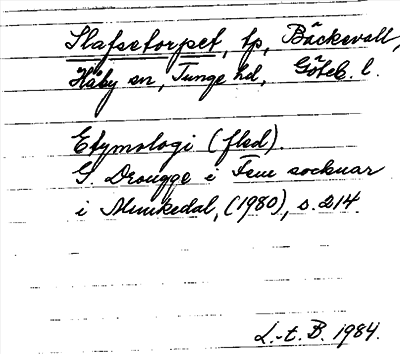 Slafsetorpet, tp, Bäckevall,
Håby sn, Tunge hd, Göteb. l.
Etymologi (flsd).
G. Drougge i Fem socknar
i Munkedal, (1980), s. 214.
L.-t. B. 1984.